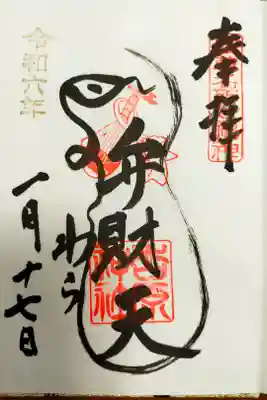 奉拝
弁財天
わら
令和六年
一月十七日